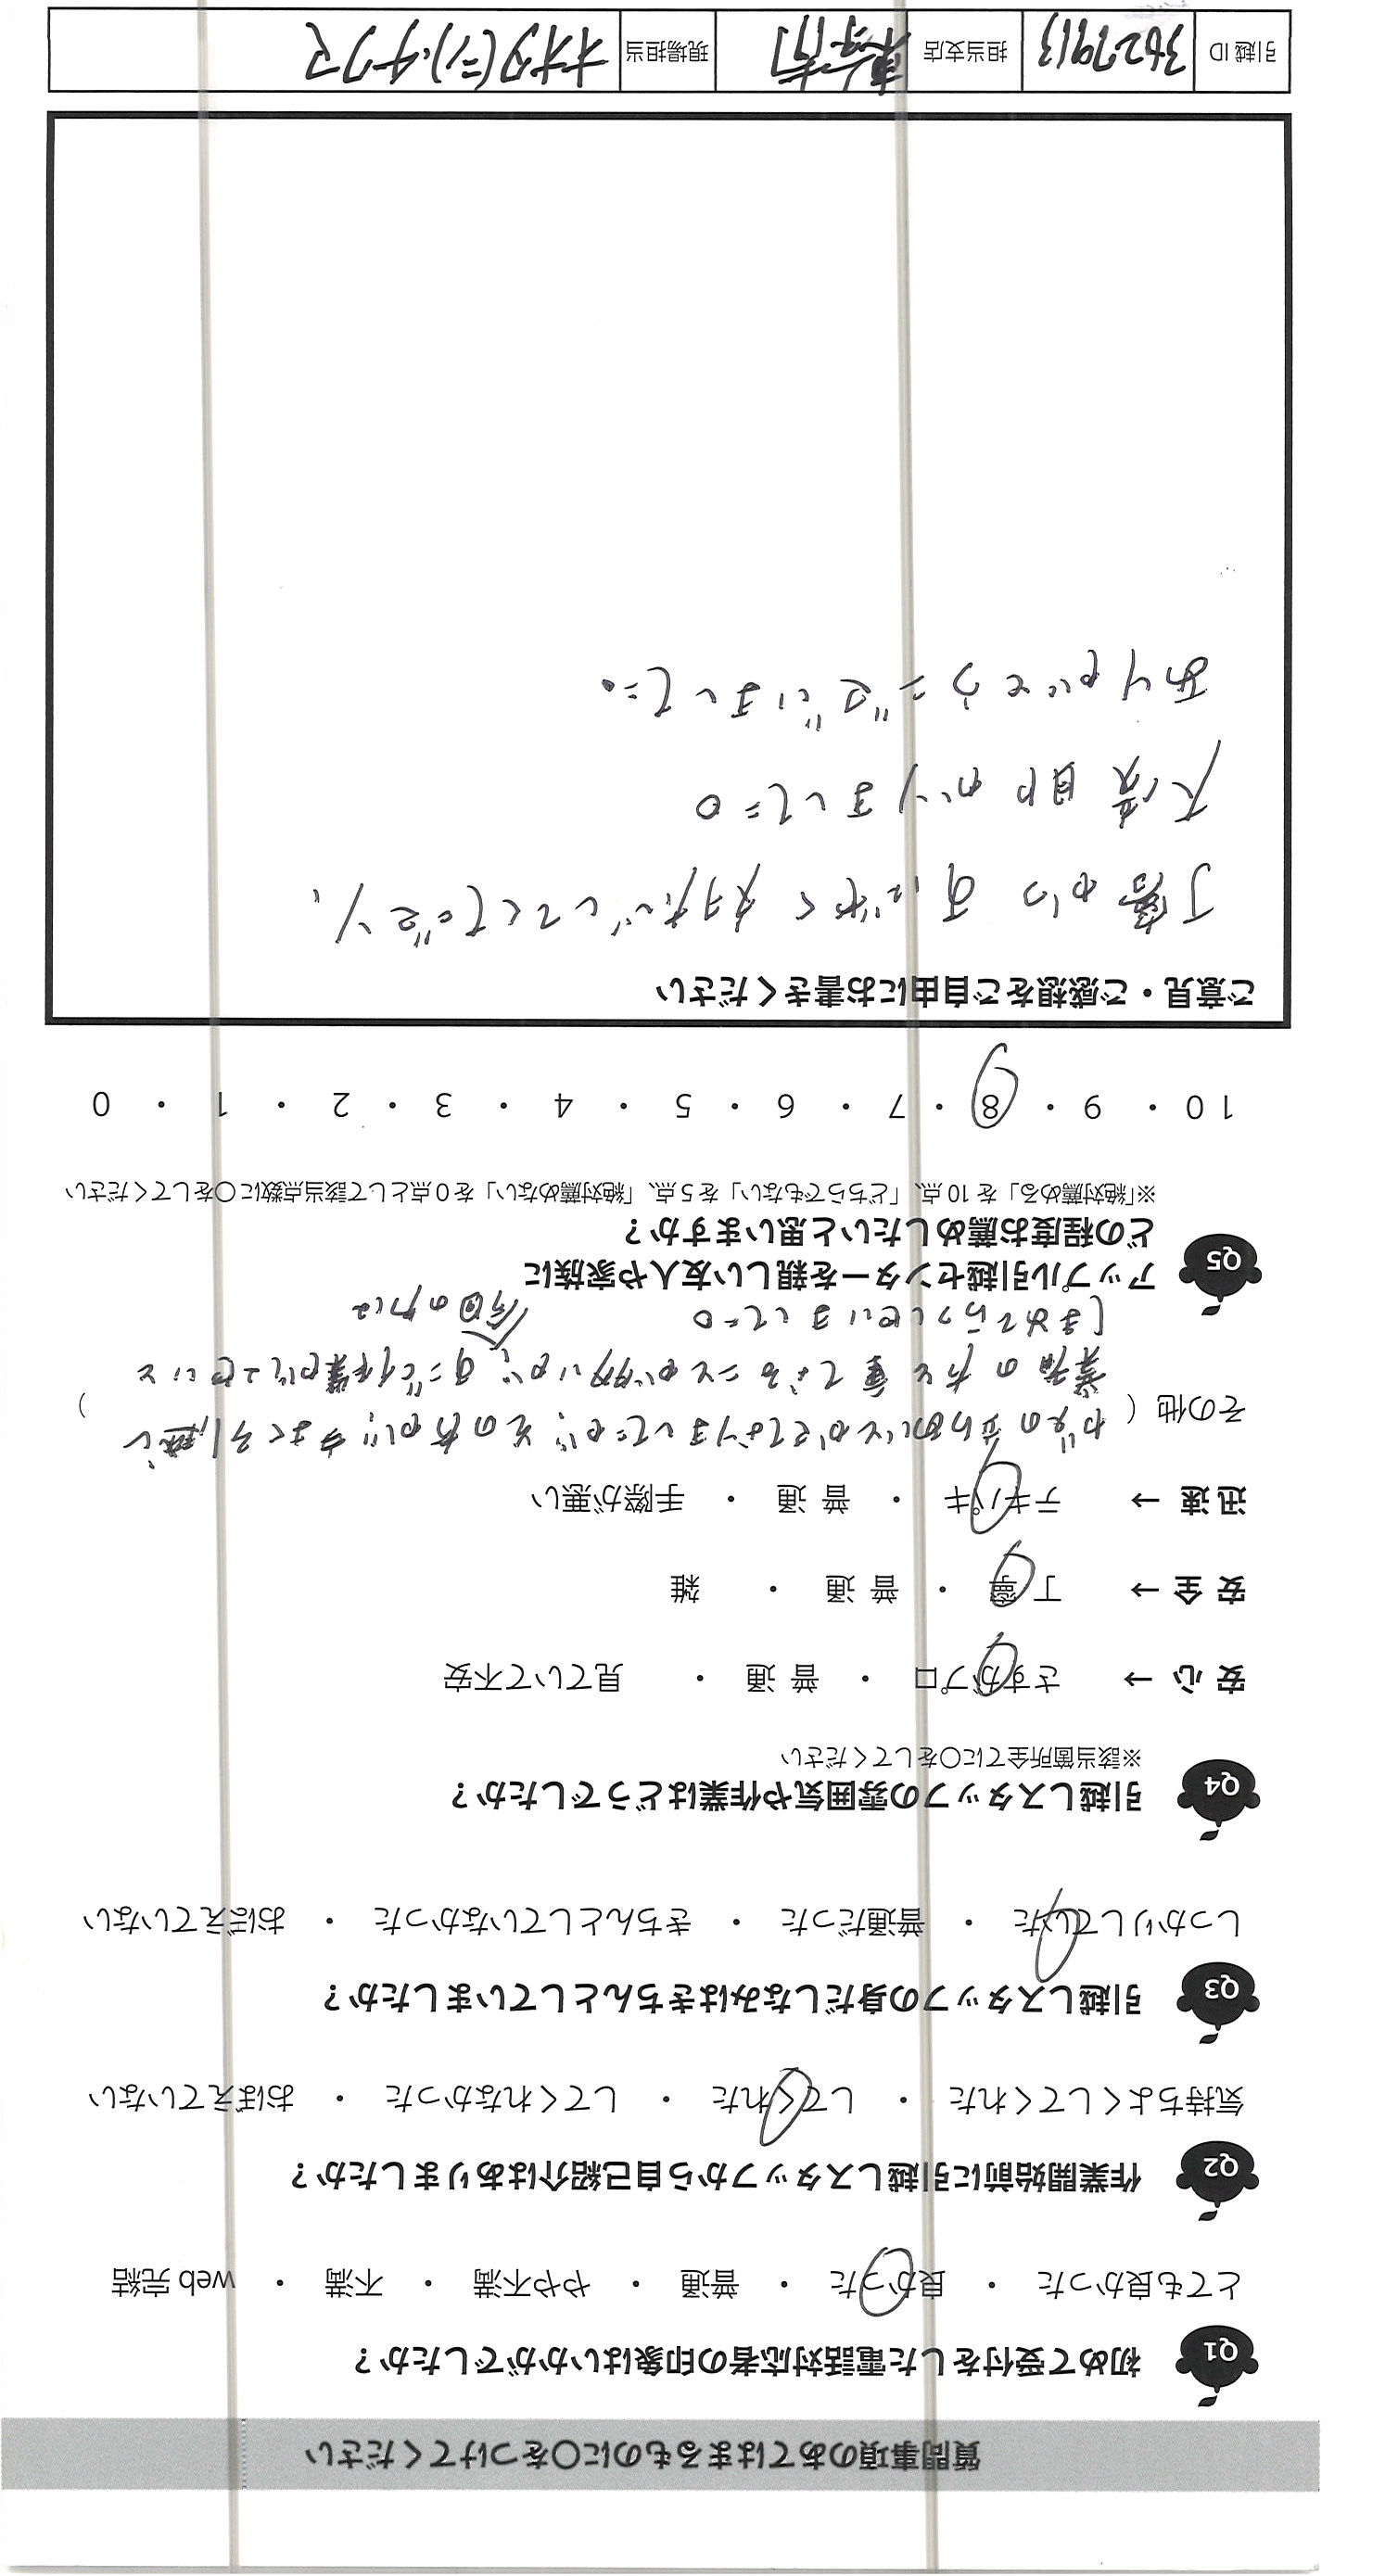 質問事項のあてはまるものに〇をつけてください
Q1 初めて受付をした電話対応者の印象はいかがでしたか？
とても良かった ・ 良かった ・ 普通 ・ やや不満 ・ 不満 ・ web 完結
Q2 作業開始前に引越しスタッフから自己紹介はありましたか？
気持ちよくしてくれた ・ してくれた ・ してくれなかった ・ おぼえていない
Q3 引越しスタッフの身だしなみはきちんとしていましたか？
しっかりしていた ・ 普通だった ・ きちんとしていなかった ・ おぼえていない
Q4 引越しスタッフの雰囲気や作業はどうでしたか？
※該当箇所全てに〇をしてください
安 心 → さすがプロ ・ 普 通 ・ 見ていて不安
安 全 → 丁 寧 ・ 普 通 ・ 雑
迅 速 → テキパキ ・ 普 通 ・ 手際が悪い
その他 ( ガスの立ち会いと なりましたが、その方が、うまく引越し )
業者の方と重なることが多いが、すごく作業がしやすいと
今回の方は
ほめてらっしゃいました。
Q5 アップル引越センターを親しい友人や家族に
どの程度お薦めしたいと思いますか？
※「絶対薦める」を 10 点、「どちらでもない」を 5 点、「絶対薦めない」を 0 点として該当点数に〇をしてください
10 ・ 9 ・ 8 ・ 7 ・ 6 ・ 5 ・ 4 ・ 3 ・ 2 ・ 1 ・ 0
ご意見・ご感想をご自由にお書きください
丁寧かつ すばやく 対応してくださり、
大変助かりました。
ありがとうございました。
引越 ID 3627913 担当支店 現場担当 オオタ(ニ)、サクマ